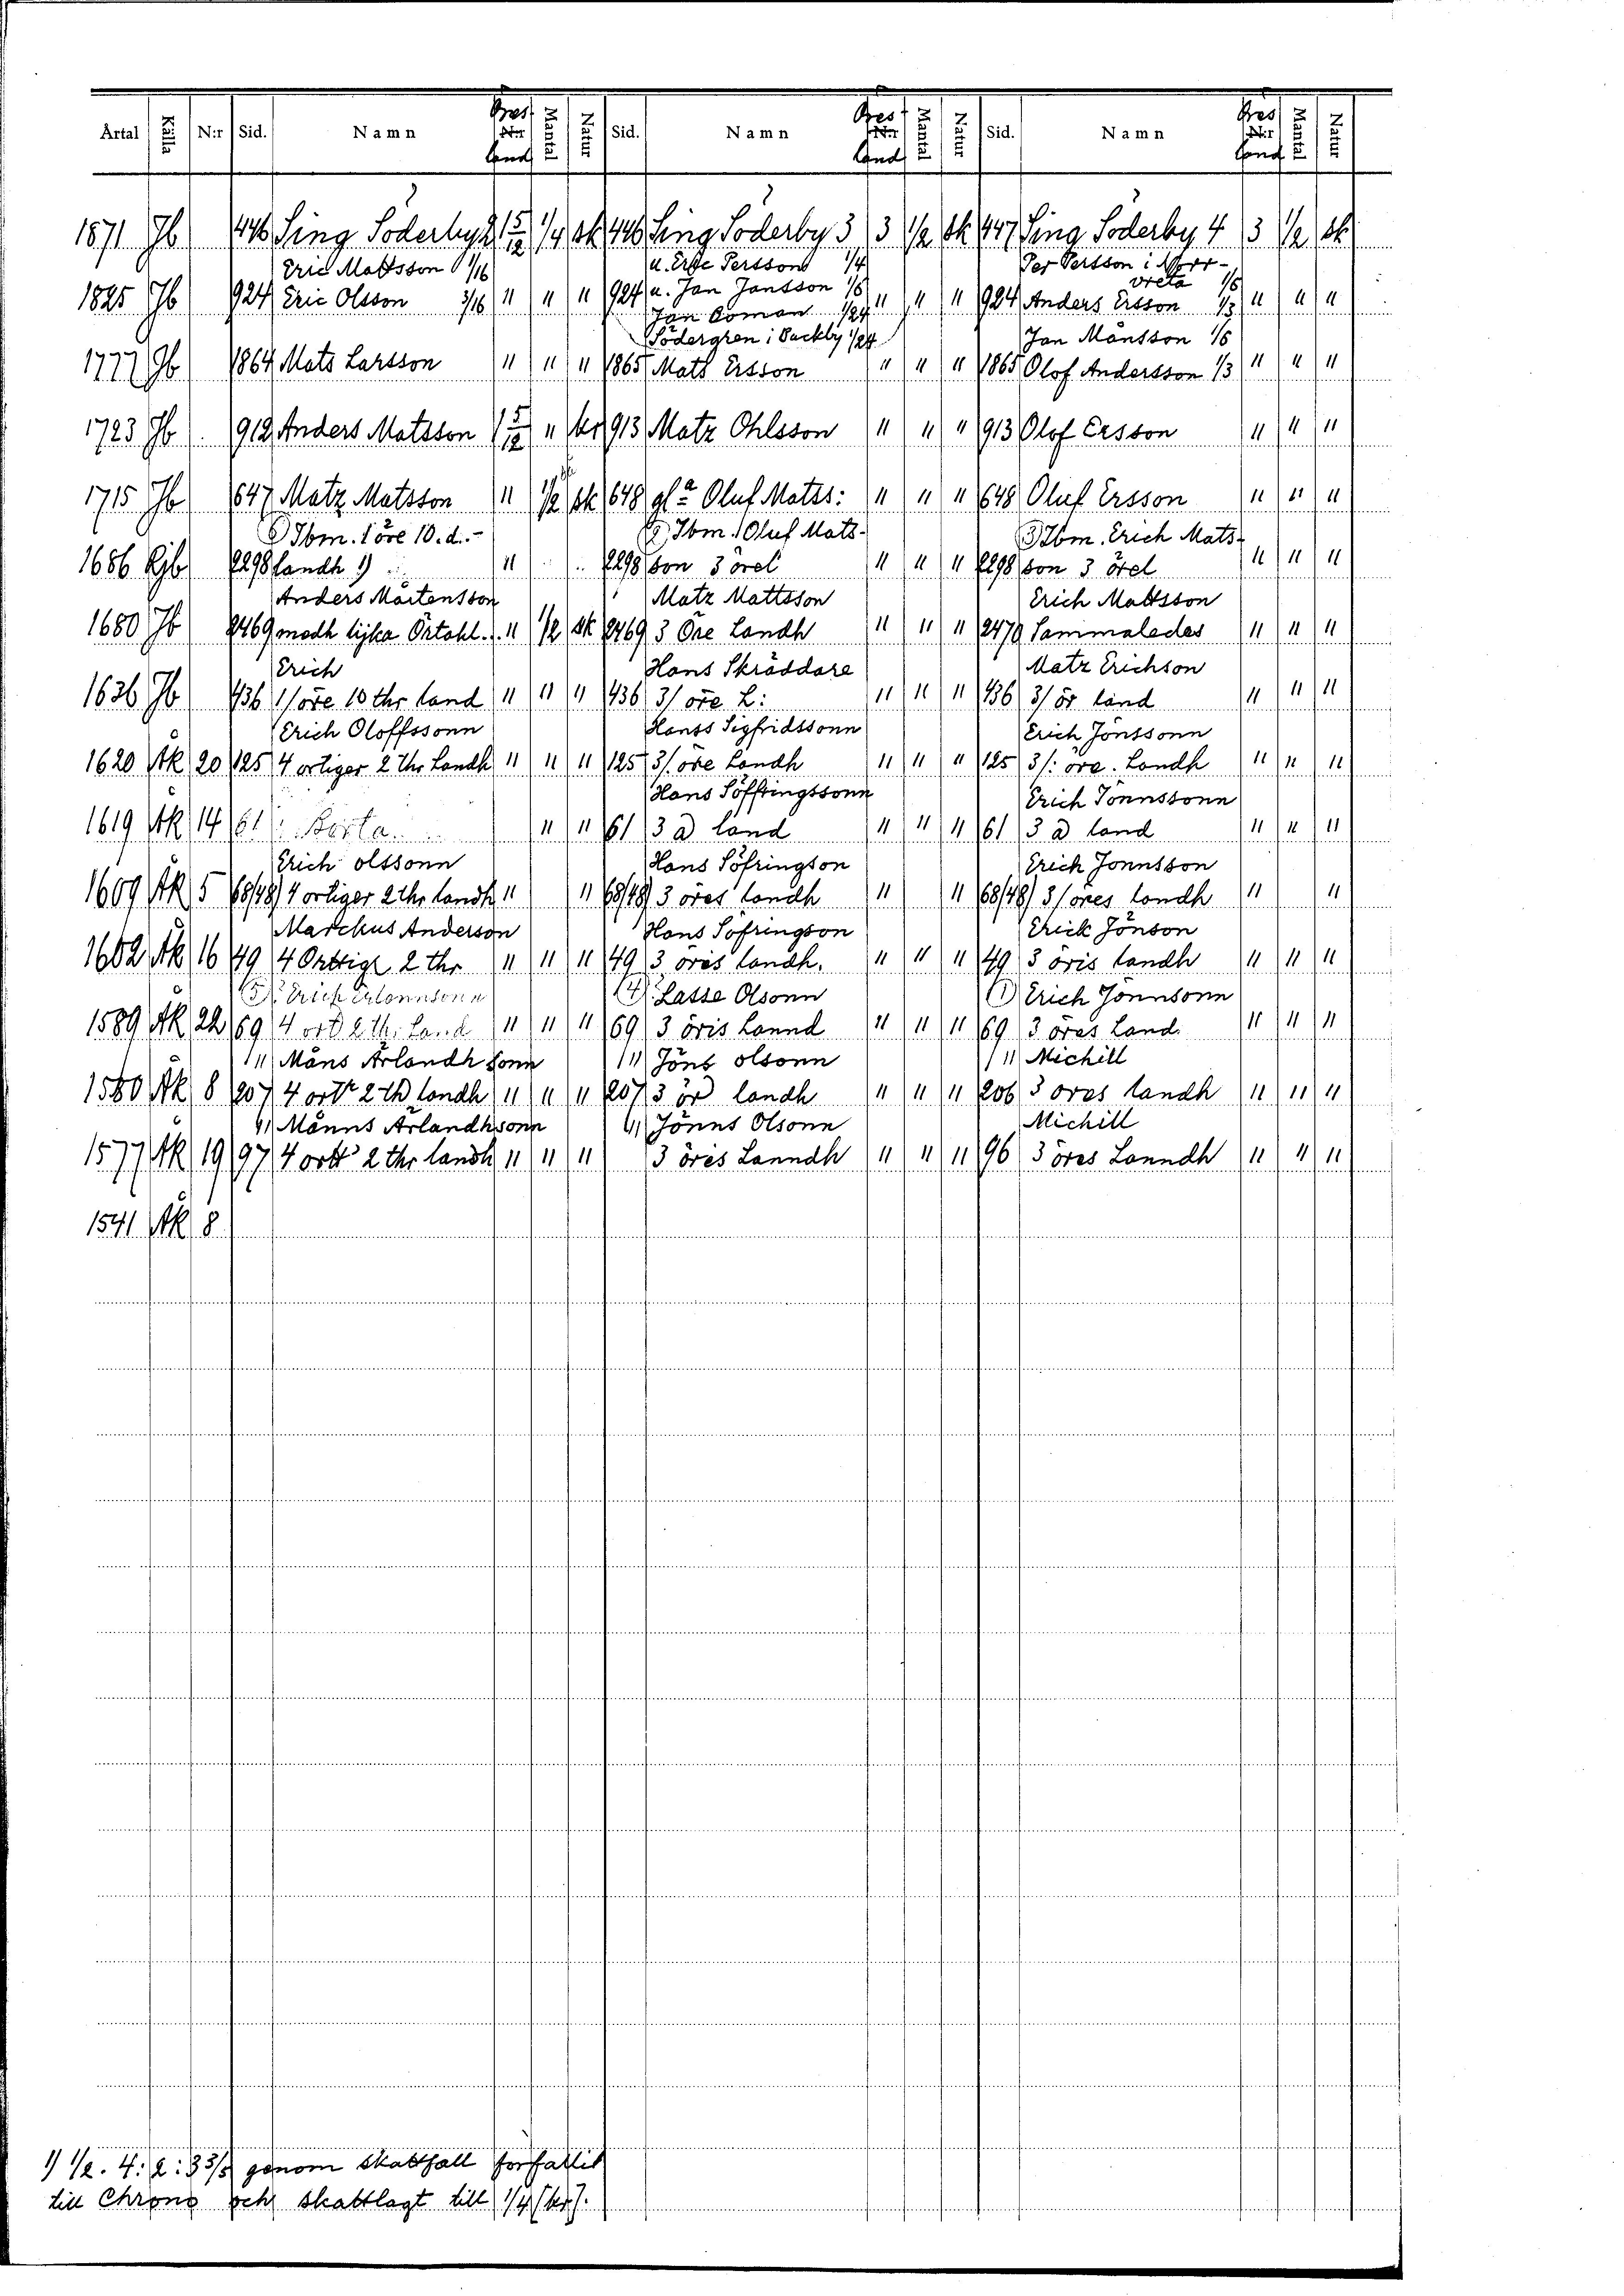 Årtal Källa N:r Sid. Namn Öresland Mantal Natur Sid. Namn Öresland Mantal Natur Sid. Namn Öresland Mantal Natur
1871 Jb 446 Sing Söderby 2 1 5/12 1/4 sk 446 Sing Söderby 3 3 1/2 sk 447 Sing Söderby 4 3 1/2 sk
Eric Mattsson 1/16 u. Erse Persson 1/4 Per Persson i Norr-
vreta 1/6
1825 Jb 924 Eric Olsson 3/16 " " " 924 u. Jan Jansson 1/6 " " " 924 Anders Ersson 1/3 " " "
Jan Boman 1/24
Södergren i Backby 1/24 Jan Månsson 1/6
1777 Jb 1864 Mats Larsson " " " 1865 Mats Ersson " " " 1865 Olof Andersson 1/3 " " "
1723 Jb 912 Anders Matsson 1 5/12 " kr 913 Matz Ohlsson " " " 913 Olof Ersson " " "
1715 Jb 647 Matz Matsson " 1/2 sk 648 gl Oluf Matss: " " " 648 Oluf Ersson " " "
Ibm. 1 öre 10. d. Ibm. Oluf Mats- (3) Ibm. Erich Mats-
1686 Rjb 2298 landh 1) " 2298 son 3 örel " " " 2298 son 3 örel " " "
Anders Mårtensson Matz Mattsson Erich Mattsson
1680 Jb 2469 medh lijka Örtahl. " 1/2 sk 2469 3 Öre Landh " " " 2470 Sammaledes " " "
Erich Hans Skräddare Matz Erichson
1636 Jb 436 1/ öre 10 thr land " " " 436 3/ öre L: " " " 436 3/ ör land " " "
Erich Oloffssonn Hanss Sigfridssonn Erich Jönssonn
1620 Åk 20 125 4 ortiger 2 thr Landh " " " 125 3/. öre Landh " " " 125 3/: öre. Landh " " "
Hans Söffringssonn Erich Jönnssonn
1619 Åk 14 61 Borta " " 61 3 ö land " " " 61 3 ö land " " "
Erich olssonn Hans Söfringson Erich Jonnsson
1609 Åk 5 68/48 4 ortiger 2 thr landh " " 68/48 3 öres landh " " 68/48 3/ öres landh " "
Marckus Anderson Hans Söfringson Erick Jönson
1602 Åk 16 49 4 Orttige 2 thr " " " 49 3 öris landh. " " " 49 3 öris landh " " "
(5) Erich Erlonnsonn (4) Lasse Olsonn (1) Erich Jönnsonn
1589 Åk 22 69 4 ort 2 th. Land " " " 69 3 öris Lannd " " " 69 3 öres Land. " " "
" Måns Ärlandh sonn " Jöns olsonn " Michill
1580 Åk 8 207 4 ort 2 th landh " " " 207 3 ör landh " " " 206 3 öres landh " " "
4) Månns Ärlandhsonn 4) Jönns Olsonn Michill
1577 Åk 19 97 4 ort 2 thr landh " " " 3 öres Lanndh " " " 96 3 öres Lanndh " " "
1541 Åk 8
1) 1/2. 4: 2: 3 3/5 genom skattfall förfallit
till Chrono och skattlagt till 1/4 (kr).